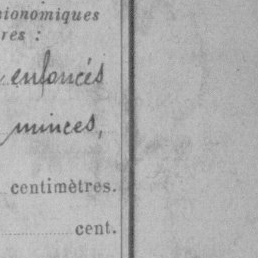 sionomiques
res :
enfoncés
minces,
centimètres.
cent.